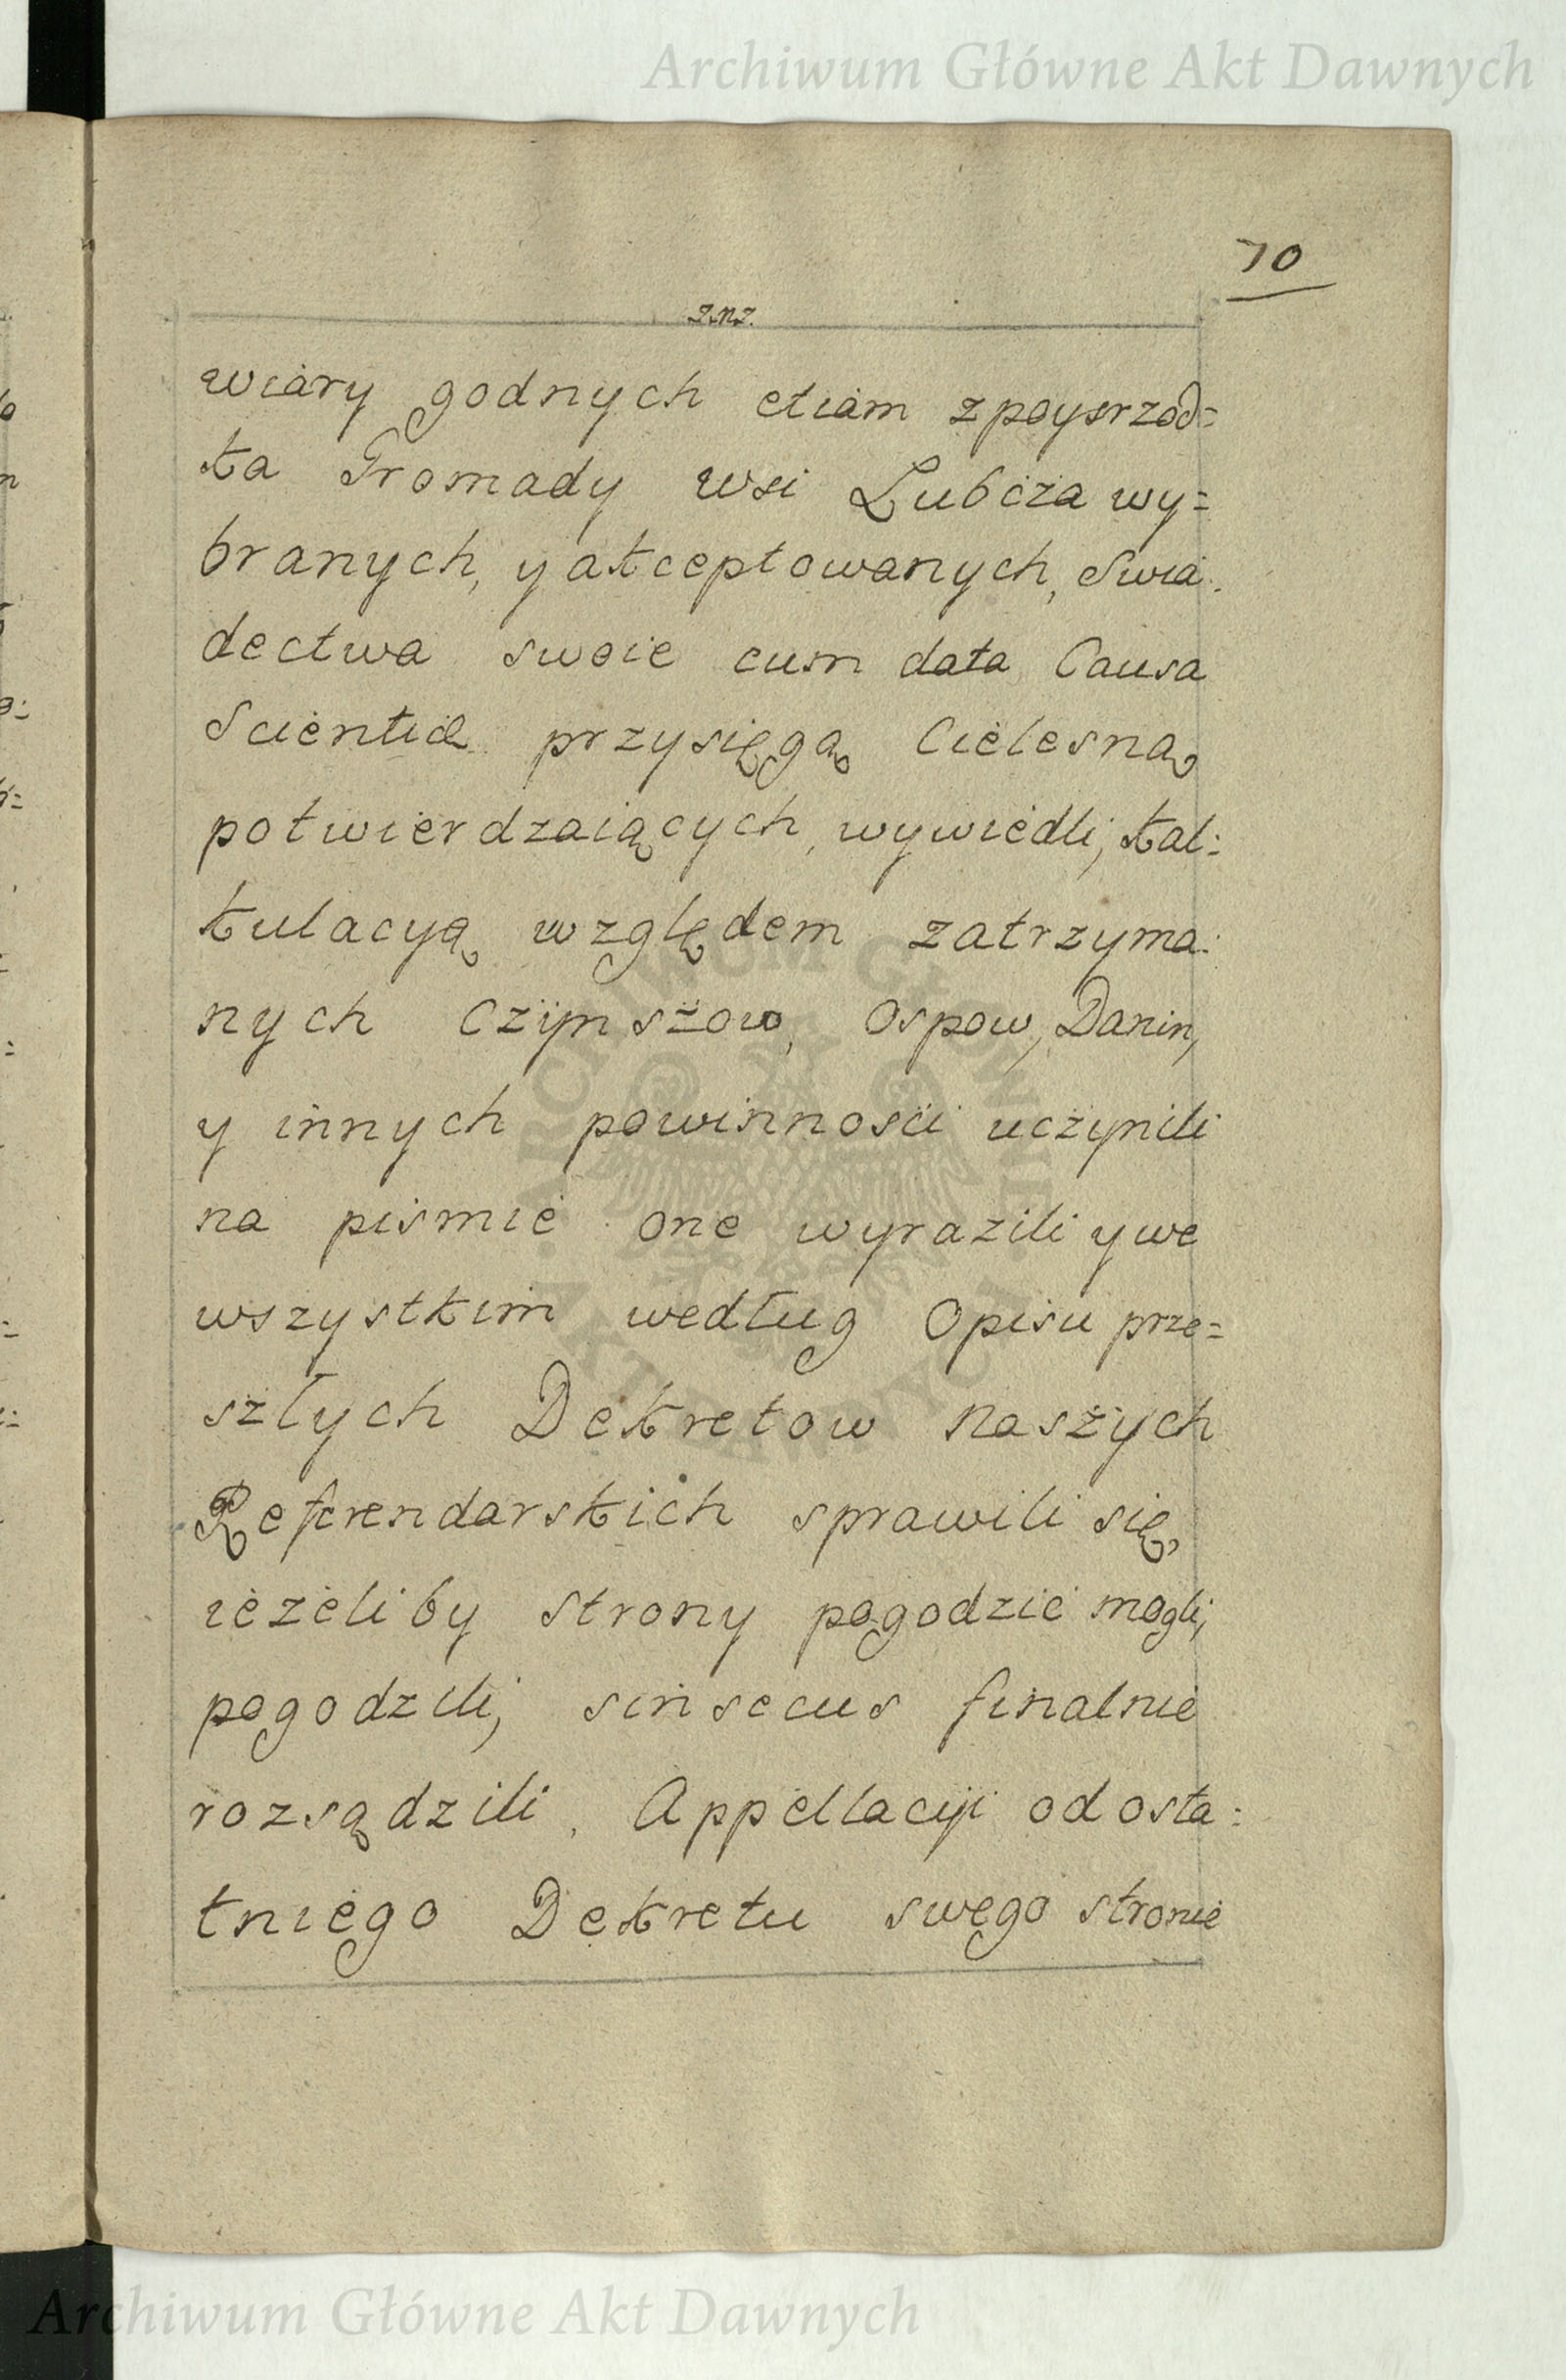 Archiwum Główne Akt Dawnych
70
wiary godnych etiam zpoysrzod=
ka Gromady wsi Lubcza wy=
branych, y akceptowanych, Swia:
dectwa swoie cum data Causa
Scientiæ przysięgą Cielesną
potwierdzaiących, wywiedli, kal:
kulacyą względem zatrzyma:
nych Czynszow, Ospow, Danin,
y innych powinnosci uczynili
na pismie one wyrazili y we
wszystkim według Opisu prze=
szłych Dekretow naszych
Referendarskich sprawili się,
ieżeliby strony pogodzić mogli,
pogodzili, sin secus finalnie
rozsądzili, Appellacyi od osta:
tniego Dekretu swego stronie
ARCHIWUM GŁÓWNE AKT DAWNYCH
Archiwum Główne Akt Dawnych